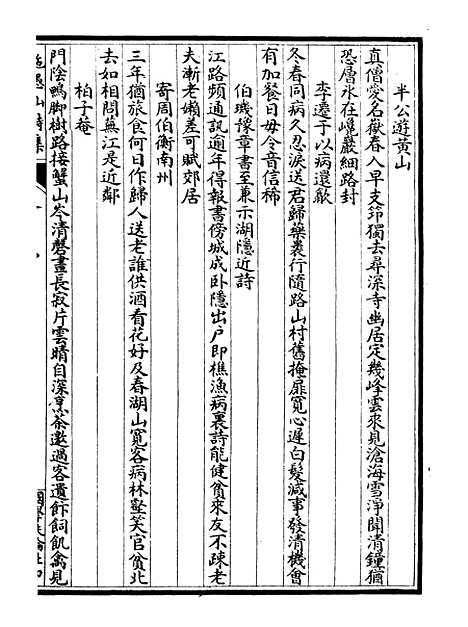 半公遊黃山
真僧愛名嶽春入早支筇獨去尋深寺幽居定幾峰雲來見滄海雪淨聞清鐘猶
恐層氷在巉巖細路封
李遠于以病還歙
冬春同病久忍淚送君歸藥裹行隨路山村舊掩扉寬心遲白髮減事發清機會
有加餐日毋令音信稀
伯璣豫章書至兼示湖隱近詩
江路頻通訊逾年得報書傍城成卧隱出户即樵漁病裏詩能健貧來友不疎老
夫漸老嬾差可賦郊居
寄周伯衡南州
三年猶旅食何日作歸人送老誰供酒看花好及春湖山寬客病林壑笑官貧北
去如相問蕪江是近鄰
柏子菴
門陰鴨脚樹路接蟹山岑清磬晝長寂片雲晴自深烹茶邀過客遺飰飼飢禽見